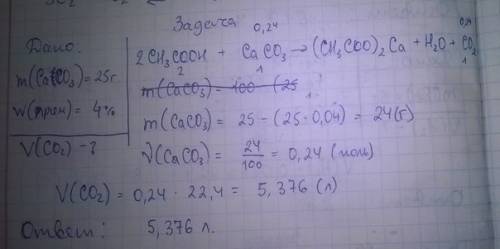 Задача
Дано:
m(CaCO₃) = 25г
w(прим) = 4%
V(CO₂) - ?
0,24 0,24
2CH₃COOH + CaCO₃ → (CH₃COO)₂Ca + H₂O + CO₂
2 1 1
m(CaCO₃) = 100 - (25
m(CaCO₃) = 25 - (25 · 0,04) = 24(г)
ν(CaCO₃) = 24/100 = 0,24 (моль)
V(CO₂) = 0,24 · 22,4 = 5,376 (л)
Ответ: 5,376 л.